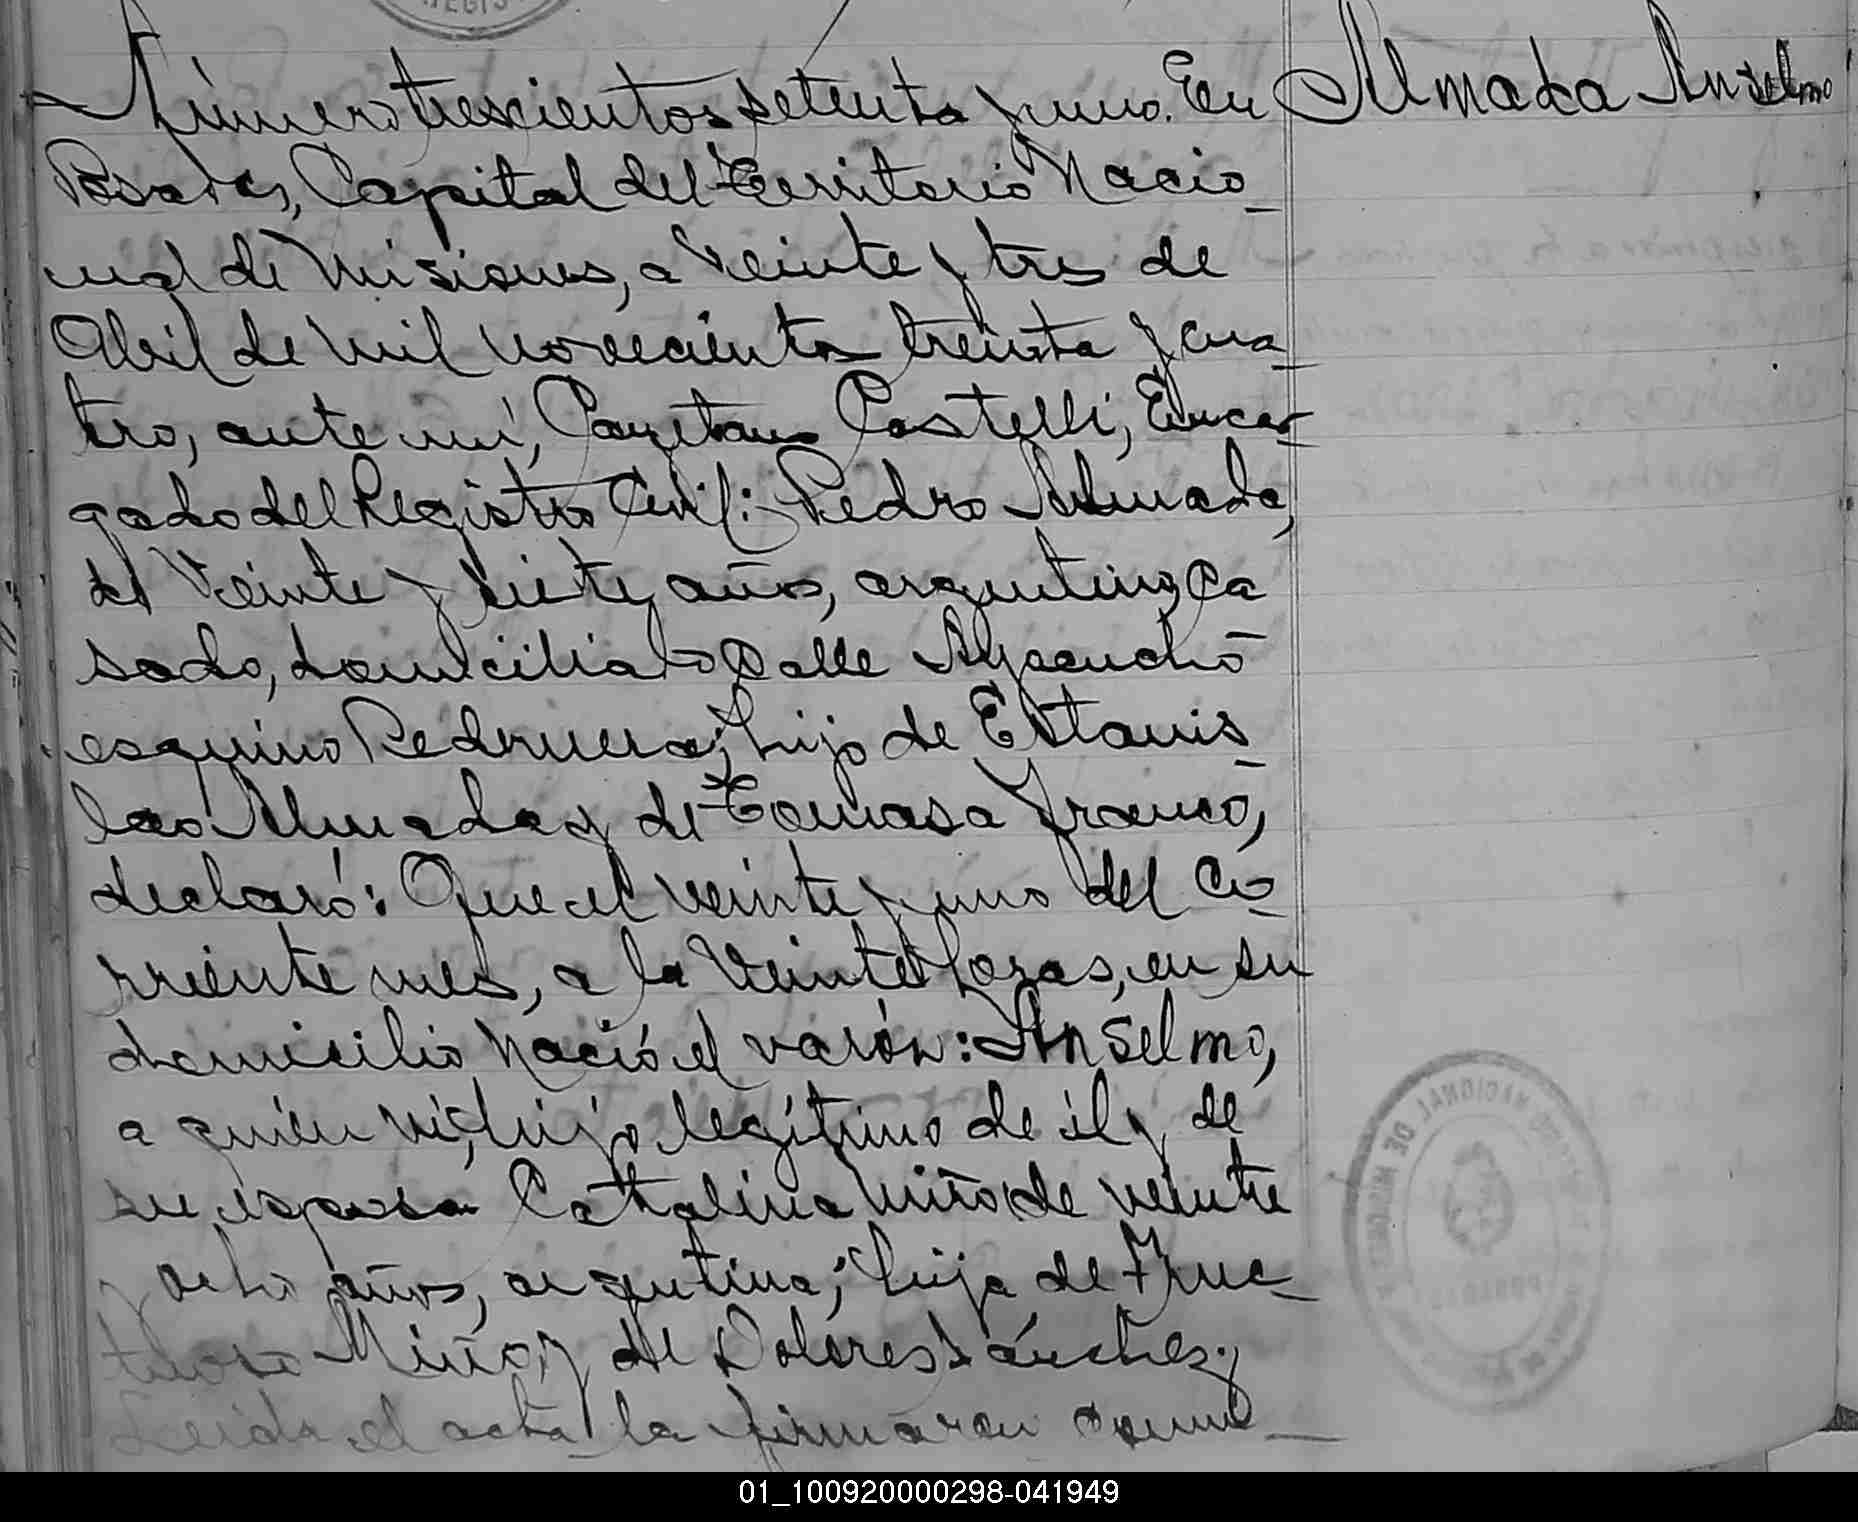 Número trescientos setenta y uno. En
Almada Anselmo
Posadas, Capital del Territorio Nacio-
nal de Misiones, a veinte y tres de
Abril de mil novecientos treinta y cua-
tro, ante mí, Cayetano Castelli, Encar-
gado del Registro Civil: Pedro Almada,
de veinte y siete años, argentino, ca
sado, domiciliado calle Ayacucho
esquina Pedernera; hijo de Estanis-
lao Almada y de Tomasa Franco,
declaró: Que el veinte y uno del co-
rriente mes, a la veinte horas, en su
domicilio nació el varón: Anselmo,
a quién vi, hijo legítimo de él y de
su esposa Catalina Miño de veinte
y ocho años, argentina; hija de Fruc-
tuoso Miño, y de Dolores Sánchez.
Leida el acta la firmaron como
NACIONAL DE MISIONES
POSADAS
REGIS
01_100920000298-041949